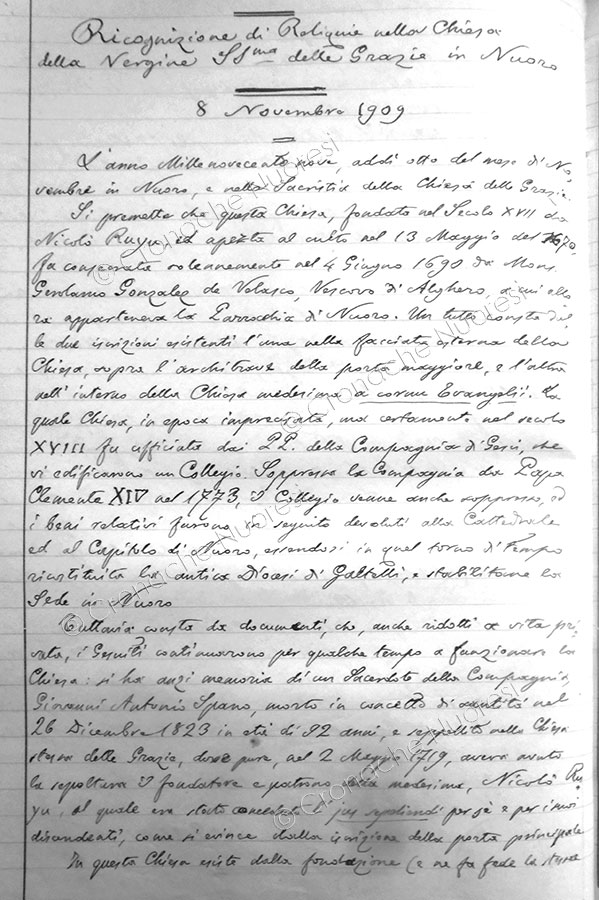 Ricognizione di Reliquie nella Chiesa
della Vergine SSma delle Grazie in Nuoro
8 Novembre 1909
L'anno Millenovecento nove, addì otto del mese di No-
vembre in Nuoro, e nella Sacristia della Chiesa delle Grazie.
Si premette che questa Chiesa, fondata nel Secolo XVII da
Nicolò Ruyu ed aperta al culto nel 13 Maggio del 1670,
fu consacrata solennemente nel 4 Giugno 1690 da Mons.
Gerolamo Gonzalez de Velasco, Vescovo di Alghero, a cui allo-
ra apparteneva la Parrocchia di Nuoro. Un tutto consta dal-
le due iscrizioni esistenti l'una nella facciata esterna della
Chiesa, sopra l'architrave della porta maggiore, e l'altra
nell'interno della Chiesa medesima a cornu Evangelii. La
quale Chiesa, in epoca imprecisata, ma certamente nel secolo
XVIII fu ufficiata dai PP. della Compagnia di Gesù, che
vi edificarono un Collegio. Soppressa la Compagnia da Papa
Clemente XIV nel 1773, il Collegio venne anche soppresso, ed
i beni relativi furono in seguito devoluti alla Cattedrale
ed al Capitolo di Nuoro, essendosi in quel torno di tempo
ricostituita la antica Diocesi di Galtellì, e stabilitane la
Sede in Nuoro
Tuttavia consta da documenti, che, anche ridotti a vita pri-
vata, i Gesuiti continuarono per qualche tempo a funzionare la
Chiesa: si ha anzi memoria di un Sacerdote della Compagnia,
Giovanni Antonio Spano, morto in concetto di santità nel
26 Dicembre 1823 in età di 92 anni, e seppellito nella Chiesa
stessa delle Grazie, dove pure, nel 2 Maggio 1719, aveva avuto
la sepoltura il fondatore e patrono della medesima, Nicolò Ru-
yu, al quale era stato concesso il jus sepeliendi per sè e per i suoi
discendenti, come si evince dalla iscrizione della porta principale
In questa Chiesa esiste dalla fondazione (e ne fa fede la stessa
© Cronache Nuoresi